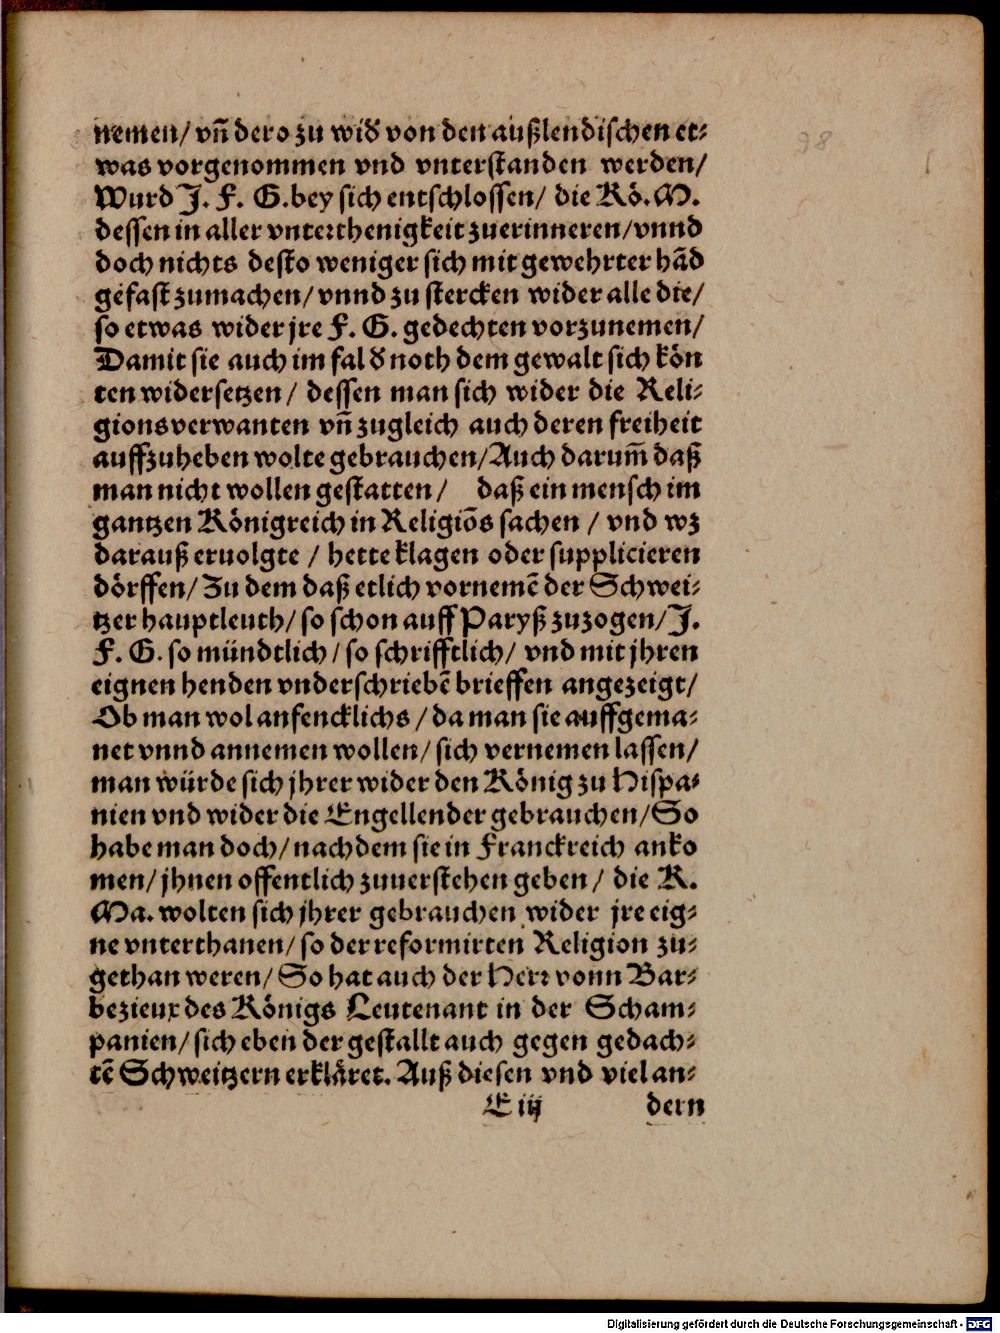 98
nemen/ vñ dero zu wid̕ von den außlendischen et⸗
was vorgenommen vnd vnterstanden werden/
Wurd J. F. G. bey sich entschlossen/ die Kö. M.
dessen in aller vnterthenigkeit zuerinneren/ vnnd
doch nichts desto weniger sich mit gewehrter hãd
gefast zumachen/ vnnd zu stercken wider alle die/
so etwas wider jre F. G. gedechten vorzunemen/
Damit sie auch im fal d̕ noth dem gewalt sich kön
ten widersetzen/ dessen man sich wider die Reli⸗
gionsverwanten vñ zugleich auch deren freiheit
auffzuheben wolte gebrauchen/ Auch darum̃ daß
man nicht wollen gestatten/ daß ein mensch im
gantzen Königreich in Religiõs sachen / vnd wz
darauß eruolgte / hette klagen oder supplicieren
dörffen/ Zu dem daß etlich vornemẽ der Schwei⸗
tzer hauptleuth/ so schon auff Paryß zuzogen/ J.
F. G. so mündtlich/ so schrifftlich/ vnd mit jhren
eignen henden vnderschriebẽ brieffen angezeigt/
Ob man wol anfencklichs / da man sie auffgema⸗
net vnnd annemen wollen/ sich vernemen lassen/
man würde sich jhrer wider den König zu Hispa⸗
nien vnd wider die Engellender gebrauchen/ So
habe man doch/ nachdem sie in Franckreich anko
men/ jhnen offentlich zuuerstehen geben / die K.
Ma. wolten sich jhrer gebrauchen wider jre eig⸗
ne vnterthanen/ so der reformirten Religion zu⸗
gethan weren/ So hat auch der Herr vonn Bar⸗
bezieux des Königs Leutenant in der Scham⸗
panien/ sich eben der gestallt auch gegen gedach⸗
tẽ Schweitzern erkläret. Auß diesen vnd viel an⸗
E iij dern
Digitalisierung gefördert durch die Deutsche Forschungsgemeinschaft - DFG